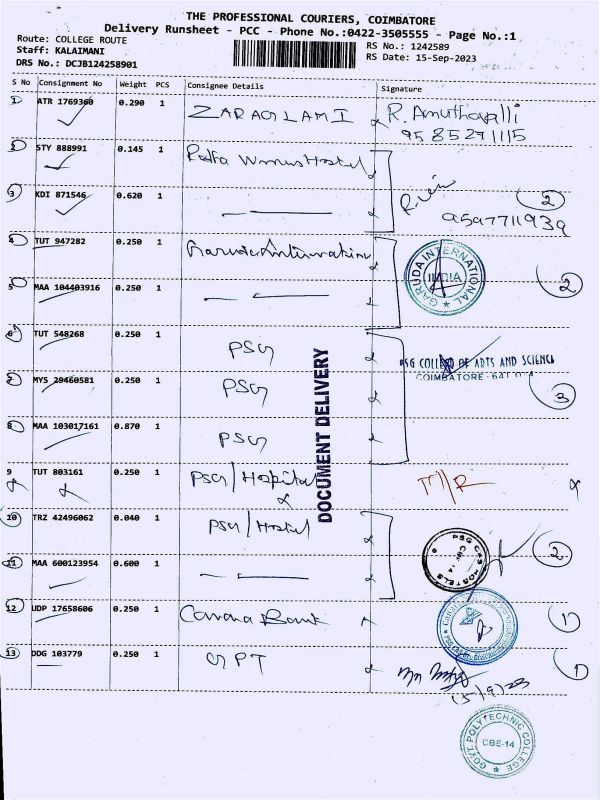 THE PROFESSIONAL COURIERS, COIMBATORE
Delivery Runsheet - PCC - Phone No.:0422-3505555 - Page No.:1
Route: COLLEGE ROUTE
RS No.: 1242589
Staff: KALAIMANI
RS Date: 15-Sep-2023
DRS No.: DCJB124258901
S No Consignment No Weight PCS Consignee Details Signature
1 ATR 1769360 0.290 1 R. Amuthavalli
9585271115
2 STY 888991 0.145 1 Hostel
3 KDI 871546 0.620 1 2
9597711939
4 TUT 947282 0.250 1 GARUDA INTERNATIONAL INDIA
5 MAA 104403916 0.250 1 2
6 TUT 548268 0.250 1 PSG
PSG COLLEGE OF ARTS AND SCIENCE
COIMBATORE - 641 014
7 MYS 29460581 0.250 1 PSG 3
8 MAA 103017161 0.870 1 PSG
DOCUMENT DELIVERY
9 TUT 803161 0.250 1 PSG/Hospital
10 TRZ 42496062 0.040 1 PSG/Hostel 2
PSG CAS HOSTELS
CBE-14
11 MAA 600123954 0.600 1
12 UDP 17658606 0.250 1 Canara Bank 1
13 DDG 103779 0.250 1 GPT 1
15/9/23
GOVT. POLYTECHNIC COLLEGE
CBE-14